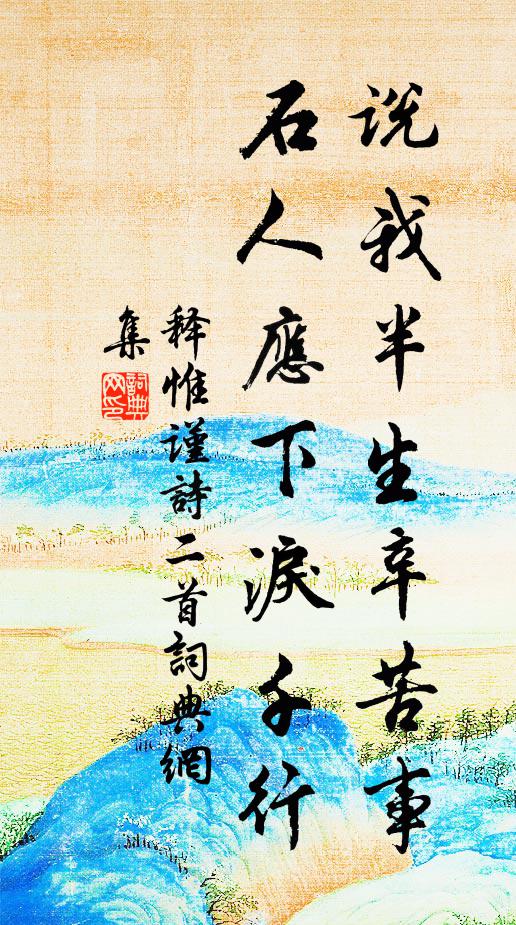 説我半生辛苦事
石人應下淚千行
釋惟謹詩二首詞典網
集
詞典
网印